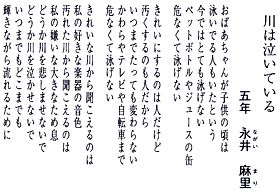 川は泣いている
五年　永井　麻里
ながい　まり
おばあちゃんが子供の頃は
泳いでる人もいたという
今ではとても泳げない
ペットボトルやジュースの缶
危なくて泳げない
きれいにするのは人だけど
汚くするのも人だから
いつまでたっても変わらない
かわらやテレビや自転車まで
危なくて泳げない
きれいな川から聞こえるのは
私の好きな楽器の音色
汚れた川から聞こえるのは
私の嫌いな大きなため息
どうか川を悲しませないで
どうか川を泣かせないで
いつまでもどこまでも
輝きながら流れるために